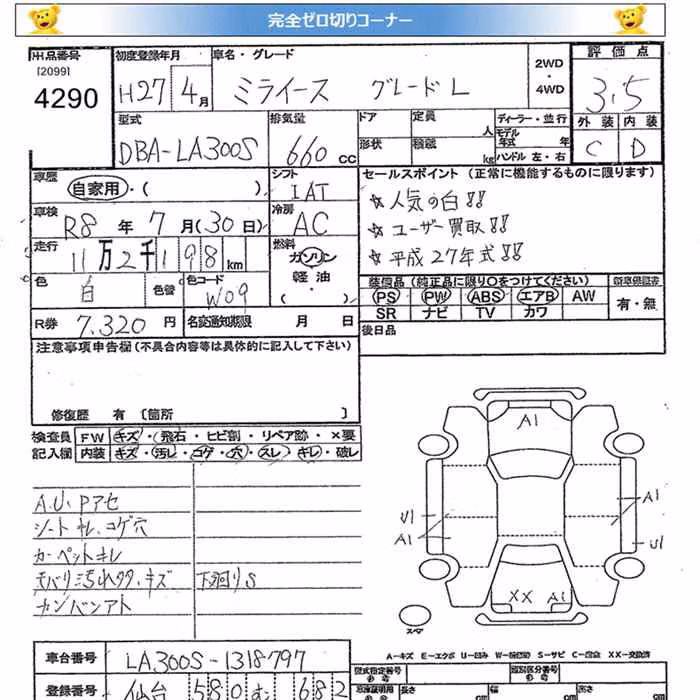 完全ゼロ切りコーナー
出品番号
[2099]
4290
初度登録年月
H27 4月
車名・グレード
ミライース グレードL
2WD
・
4WD
評価点
3.5
外装 内装
C D
型式
DBA-LA300S
排気量
660 cc
ドア
定員
人
形状
積載
kg
ディーラー・並行
モデル
年式 年
ハンドル 左・右
車歴
自家用・( )
シフト
IAT
セールスポイント (正常に機能するものに限ります)
☆人気の白!!
☆ユーザー買取!!
☆平成27年式!!
車検
R8 年 7 月(30日)
冷房
AC
走行
11万2千198km
燃料
ガソリン
軽油
( )
色
白
色替
色コード
W09
装備品 (純正品に限り○をつけてください)
PS PW ABS エアB AW
SR ナビ TV カワ
新車保証書
有・無
R券 7,320 円
名変通知期限 月 日
後日品
注意事項申告欄(不具合内容等は具体的に記入して下さい)
修復歴 有 [箇所 ]
検査員
記入欄
FW キズ・飛石・ヒビ割・リペア跡・×要
内装 キズ・汚レ・コゲ・穴・スレ・キレ・破レ
A.U.Pアセ
シートキレ、コゲ穴
カーペットキレ
モパリ汚れククタ、キズ 下廻りS
カンバンアト
A1
U1
A1
A1
U1
XX A1
スペア
A-キズ E-エクボ U-凹み W-板金跡 S-サビ C-腐蝕 XX-交換済
車台番号 LA300S-1318797
登録番号 仙台 580 む 682
型式指定番号
類別区分番号
長さ cm
幅 cm
高さ cm